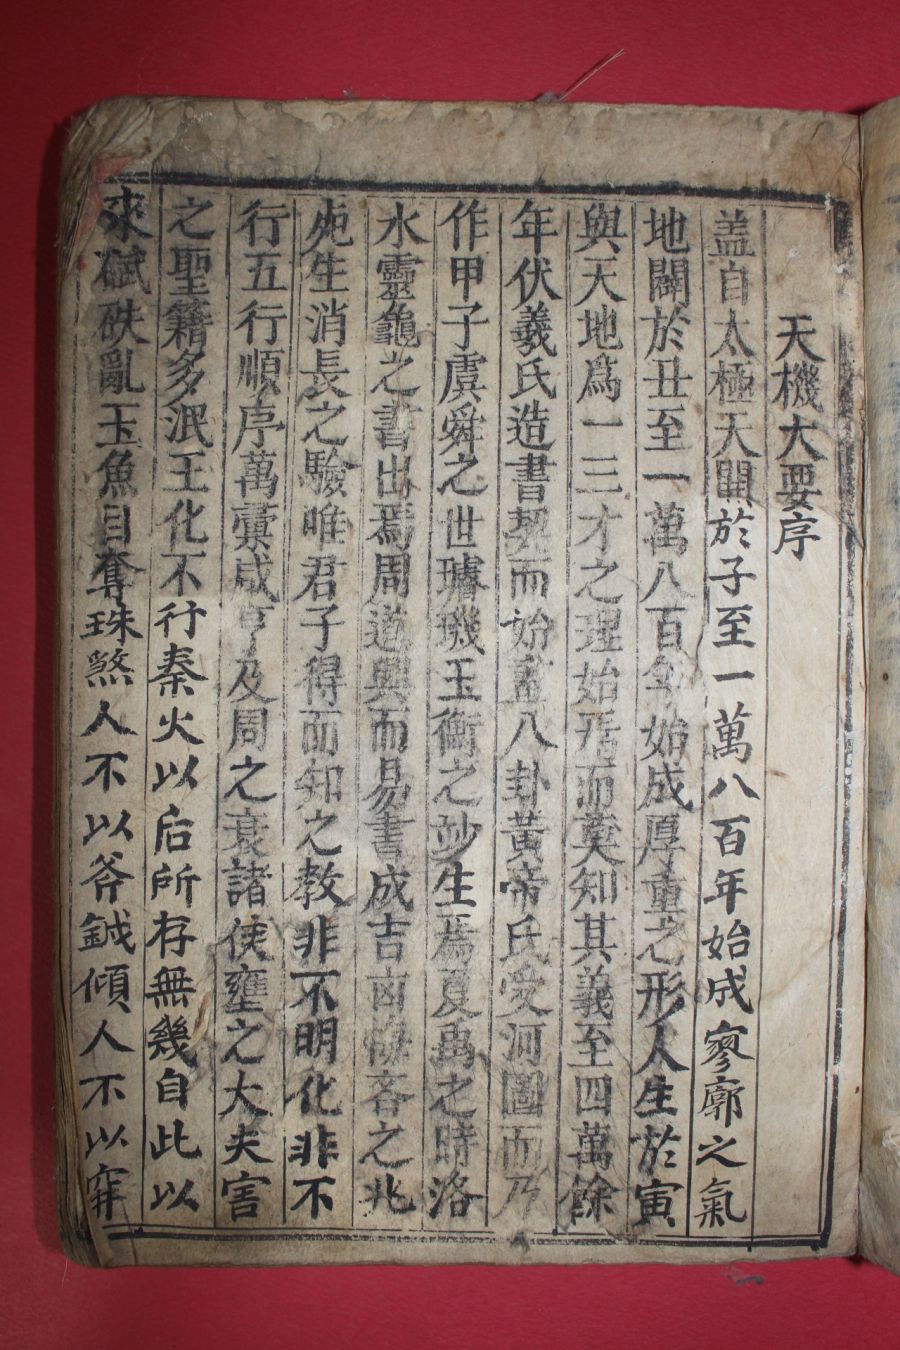 天機大要序
盖自太極天開於子至一萬八百年始成寥廓之氣
地闢於丑至一萬八百年始成厚重之形人生於寅
與天地爲一三才之理始
而莫知其義至四萬餘
年伏羲氏造書契而始畫八卦黃帝氏受河圖而乃
作甲子虞舜之世璿璣玉衡之妙生焉夏禹之時洛
水靈龜之書出焉周道興而易書成吉凶悔吝之兆
死生消長之驗唯君子得而知之教非不明化非不
行五行順序萬彙咸亨及周之衰諸侯壅之大夫害
之聖籍多泯王化不行秦火以后所存無幾自此以
來碔砆亂玉魚目奪珠煞人不以斧鉞傾人不以穽